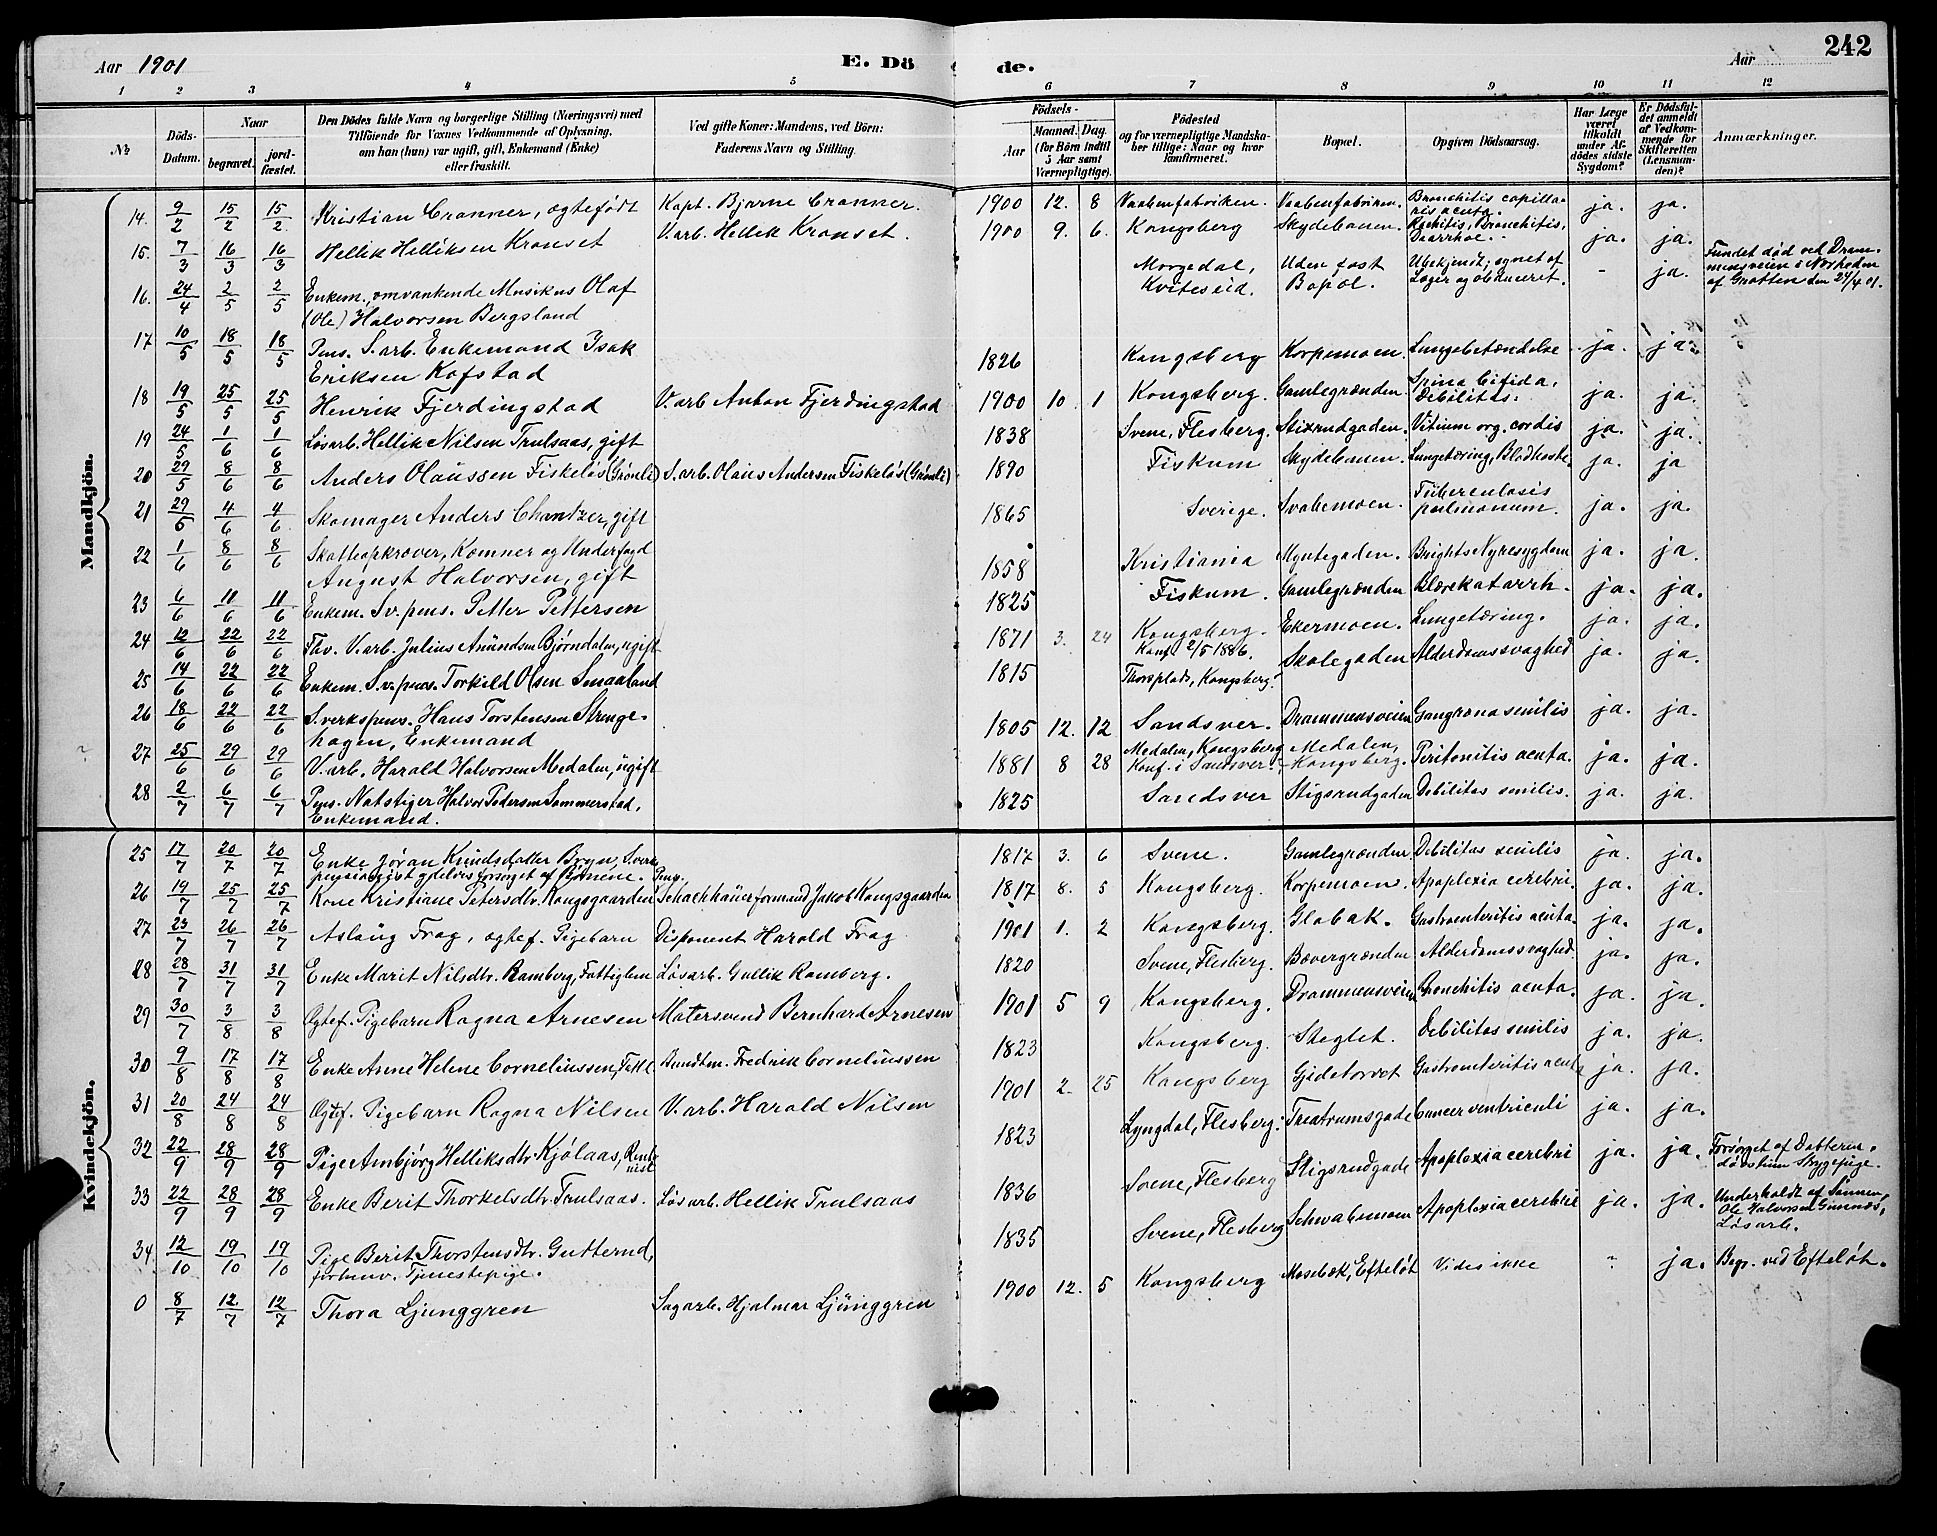 Aar 1901
E. Dö de.
Aar
242
1 2 3 4 5 6 7 8 9 10 11 12
No
Döds-Datum.
Naar
begravet.
jord-fæstet.
Den Dödes fulde Navn og borgerlige Stilling (Næringsvei) med
Tilföiende for Voxnes Vedkommende af Oplysning,
om han (hun) var ugift, gift, Enkemand (Enke)
eller fraskilt.
Ved gifte Koner: Mandens, ved Börn:
Faderens Navn og Stilling.
Födsels-
Aar
Maaned. Dag.
(for Börn indtil
5 Aar samt
Værnepligtige).
Födested
og for værnepligtige Mandska-
ber tillige: Naar og hvor
konfirmeret.
Bopæl.
Opgiven Dödsaarsag.
Har Læge
været
tilkaldt
under Af-
dödes sidste
Sygdom?
Er Dödsfal-
det anmeldt
af Vedkom-
mende for
Skifteretten
(Lensman-
den)?
Anmærkninger.
Mandkjön.
14. 9/2 15/2 15/2 Kristian Cranner, ægtefödt Kapt. Bjarne Cranner. 1900 12. 8 Vaabenfabriken. Vaabenfabriken. Bronchitis capillaris acuta. ja. ja.
15. 7/3 16/3 16/3 Hellik Helliksen Kronset V.arb. Hellik Kronset. 1900 9. 6. Kongsberg Skydebanen. Rachitis, Bronchitis, Diarrhoe. ja. ja.
16. 24/4 2/5 2/5 Enkem., omvankende Musikus Olaf
(Ole) Halvorsen Bergsland Morgedal, Kviteseid. Uden fast Bopæl. Ubekjendt; synet af Læger og obduceret. - ja. Fundet död ved Drammensveien i Nærheden af Grotten den 24/4 01.
17 10/5 18/5 18/5 Pens. S.arb. Enkemand Isak
Eriksen Kofstad 1826 Kongsberg Korpemoen. Lungebetændelse ja. ja.
18 19/5 25/5 25/5 Henrik Fjerdingstad V.arb Anton Fjerdingstad 1900 10. 1 Kongsberg. Gamlegrænden. Spina bifida, Debilitas. ja. ja.
19 24/5 1/6 1/6 Løsarb. Hellik Nilsen Trulsaas, gift 1838 Svene, Flesberg. Stixrudgaden. Vitium org. cordis ja. ja.
20 29/5 8/6 8/6 Anders Olaussen Fiskeløs (Grönli) S.arb. Olaus Andersen Fiskeløs (Grönli) 1890 Fiskum Skydebanen. Lungetæring, Blodhoste. ja. ja
21 29/5 4/6 4/6 Skomager Anders Chantzer, gift 1865 Sverige. Svabemoen. Tüberculosis pulmonum. ja. ja.
22 1/6 8/6 8/6 Skatteopkræver, Kæmner og Underfogd
August Halvorsen, gift 1858 Kristiania Myntegaden. Brights Nyresygdom ja. ja.
23 6/6 11/6 11/6 Enkem. Sv. pens. Petter Pettersen 1825 Fiskum. Gamlegrænden Blærekatarrh. ja. ja.
24 12/6 22/6 22/6 Fhv. V.arb. Julius Amundsen Bjørndalen, ugift 1871 3. 24 Kongsberg. Konf. 2/5 1886. Ekermoen. Lungetæring. ja. ja.
25 14/6 22/6 22/6 Enkem. S.v. pens. Torkild Olsen Smaaland 1815 Thorsplads, Kongsberg. Skolegaden Alderdomssvaghed ja. ja.
26 18/6 22/6 22/6 S.verkspens. Hans Torstensen Strenge-
hagen, Enkemand 1805 12. 12 Sandsver. Drammensveien Gangræna senilis ja. ja.
27 25/6 29/6 29/6 V.arb. Harald Halvorsen Medalen, ugift 1881 8 28 Medalen, Kongsberg Konf. i Sandsver. Medalen, Kongsberg. Peritonitis acuta. ja. ja.
28 2/7 6/7 6/7 Pens. Natstiger Halvor Pedersen Sommerstad,
Enkemand. 1825 Sandsver Stigsrudgaden Debilitas senilis. ja. ja.
Kvindekjön.
25 17/7 20/7 20/7 Enke Jøran Knudsdatter Bryn, S.verks
pensionist ydelvis forsørget af Børnene. 1817 3. 6 Svene. Gamlegrænden. Debilitas senilis ja. ja.
26 19/7 25/7 25/7 Kone Kristiane Petersdtr. Kongsgaarden Pens. Schachthauerformand Jakob Kongsgaarden 1817 8. 5 Kongsberg. Korpemoen. Apoplexia cerebri. ja. ja.
27 23/7 26/7 26/7 Aslaug Frog, ægtef. Pigebarn Disponent Harald Frog 1901 1. 2 Kongsberg. Glabak. Gastroenteritis acuta. ja. ja.
28 28/7 31/7 31/7 Enke Marit Nilsdtr. Ramberg, Fattiglem Løsarb. Gullik Ramberg. 1820 Svene, Flesberg. Bævergrænden Alderdomssvaghed. ja. ja.
29 30/7 3/8 3/8 Ægtef. Pigebarn Ragna Arnesen Malersvend Bernhard Arnesen 1901 5 9 Kongsberg. Drammensveien Bronchitis acuta. ja. ja.
30 9/8 17/8 17/8 Enke Anne Helene Corneliussen, Fattl. Bundtm. Fredrik Corneliussen 1823 Kongsberg. Steglet. Debilitas senilis ja. ja.
31 20/8 24/8 24/8 Ægtef. Pigebarn Ragna Nilsen V.arb. Harald Nilsen 1901 2. 25 Kongsberg Gjetetorvet Gastroenteritis acuta ja. ja.
32 22/9 28/9 28/9 Pige Ambjørg Helliksdtr. Kjölaas, Rentenist 1823 Lyngdal, Flesberg. Theatrumsgade Cancer ventriculi ja. ja.
33 22/9 28/9 28/9 Enke Berit Thorkelsdtr. Trulsaas. Løsarb. Hellik Trulsaas 1836 Svene, Flesberg Stigsrudgade Apoplexia cerebri ja. ja. Forsørget af Datteren, Sygepige.
34 12/10 19/10 19/10 Pige Berit Thorstensdtr. Gutterud,
forhenv. Tjenestepige. 1835 Svene, Flesberg Schwabemoen Apoplexia cerebri ja. ja. Underholdt af Sønnen, Ole Halvorsen Gunnes, Løsarb.
0 8/7 12/7 12/7 Thora Ljunggren Sagarb. Hjalmar Ljünggren 1900 12. 5 Kongsberg Mosebæk, Efteløt Vides ikke ? ja. Begr. ved Efteløt.